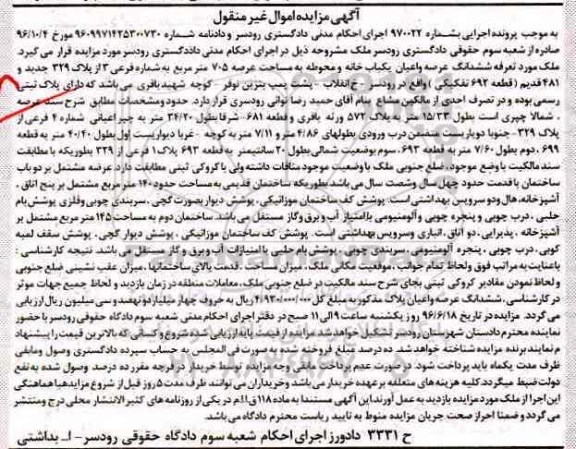 آگهی مزایده اموال غیر منقول
به موجب پرونده اجرایی بشماره ۹۷۰۰۲۲ اجرای احکام مدنی دادگستری رودسر و دادنامه شماره ۹۶۰۹۹۷۱۴۲۵۳۰۰۷۳۰ مورخ ۹۶/۱۰/۴
صادره از شعبه سوم حقوقی دادگستری رودسر ملک مشروحه ذیل در اجرای احکام مدنی دادگستری رودسر مورد مزایده قرار می گیرد.
ملک مورد تعرفه ششدانگ عرصه واعیان یکباب خانه و محوطه به مساحت عرصه ۷۰۵ متر مربع به شماره فرعی ۳ از پلاک ۳۲۹ جدید و
۴۸۱ قدیم (قطعه ۶۹۲ تفکیکی) واقع در رودسر - خ انقلاب - پشت پمپ بنزین نوفر - کوچه شهید باقری می باشد که دارای پلاک ثبتی
رسمی بوده و در تصرف احدی از مالکین مشاع بنام آقای حمید رضا توانی رودسری قرار دارد. حدود و مشخصات مطابق شرح سند عرصه
، شمالا چپری است بطول ۱۵/۲۳ متر به پلاک ۵۷۲ ورثه باقری و قطعه ۶۸۱- شرقا بطول ۳۴/۲۰ متر به چپر اعیانی شماره ۴ فرعی از
پلاک ۳۲۹- جنوبا دوباریست متضمن درب ورودی بطولهای ۴/۸۶ متر و ۷/۱۱ متر به کوچه - غربا دیواریست اول بطول ۴۰/۲۰ متر به قطعه
۶۹۹ ، دوم بطول ۷/۶۰ متر به قطعه ۶۹۳، سوم بوضعیت شمالی بطول ۲۰ سانتیمتر به قطعه ۶۹۳ پلاک ۱ فرعی از ۳۲۹ بطوریکه با مطابقت
سند مالکیت با وضع موجود، ضلع جنوبی ملک با وضعیت موجود منافات داشته ولی با کروکی ثبتی مطابقت دارد. عرصه مشتمل بر دو باب
ساختمان با قدمت حدود چهل سال و شصت سال می باشد بطوریکه ساختمان قدیمی به مساحت حدود ۱۴۰ متر مربع مشتمل بر پنج اتاق ،
آشپزخانه، هال و دو سرویس بهداشتی است. پوشش کف ساختمان موزائیکی، پوشش دیوار بصورت گچی ، سربندی چوبی وفلزی پوشش بام
حلبی ، درب چوبی و پنجره چوبی و آلومینیومی با امتیاز آب و برق وگاز مستقل می باشد. ساختمان دوم به مساحت ۱۴۵ متر مربع مشتمل بر
آشپزخانه ، پذیرایی ، دو اتاق، انباری وسرویس بهداشتی است . پوشش کف ساختمان موزائیکی ، پوشش دیوار گچی ، پوشش سقف لمبه
کوبی، درب چوبی ، پنجره آلومینیومی ، سربندی چوبی ، پوشش بام حلبی با امتیازات آب و برق و گاز مستقل می باشد. نتیجه کارشناسی :
باعنایت به مراتب فوق ولحاظ تمام جوانب ، موقعیت مکانی ملک، میزان مساحت ، قدمت بالای ساختمانها ، میزان عقب نشینی ضلع جنوبی
و لحاظ نمودن مقادیر کروکی ثبتی بجای شرح سند مالکیت در ضلع جنوبی ملک، معاملات منطقه در زمان بازدید و لحاظ جمیع جهات موثر
در کارشناسی، ششدانگ عرصه واعیان پلاک مذکور به مبلغ کل ۴/۹۳۰/۰۰۰/۰۰۰ ریال به حروف چهار میلیارد و نهصد و سی میلیون ریال ارزیابی
می گردد. مزایده در تاریخ ۹۶/۶/۱۸ روز یکشنبه ساعت ۹ الی ۱۱ صبح در دفتر اجرای احکام مدنی شعبه سوم دادگاه حقوقی رودسر با حضور
نماینده محترم دادستان شهرستان رودسر تشکیل خواهد شد مزایده از قیمت پایه ارزیابی شده شروع و کسانی که بالاترین قیمت را پیشنهاد
نمایند برنده مزایده شناخته خواهد شد. ده درصد مبلغ فروخته شده به صورت فی المجلس به حساب سپرده دادگستری وصول و مابقی
ظرف مدت یکماه باید پرداخت شود. در صورت عدم پرداخت مابقی وجه مزایده توسط خریدار در فرجه مقرر ده درصد وصول شده به نفع
دولت ضبط میگردد. کلیه هزینه های متعلقه بر عهده خریدار می باشد و خریداران می توانند ظرف مدت ۵ روز قبل از شروع مزایده با هماهنگی
این اجرا از ملک مورد مزایده بازدید به عمل آورند. این آگهی مستندا به ماده ۱۱۸ ق.ا.م در یکی از روزنامه های کثیرالانتشار محلی درج و منتشر
می گردد و ضمنا احراز صحت جریان مزایده منوط به تایید ریاست محترم دادگاه می باشد.
ح ۳۳۳۱ دادورز اجرای احکام شعبه سوم دادگاه حقوقی رودسر - ا. بداشتی